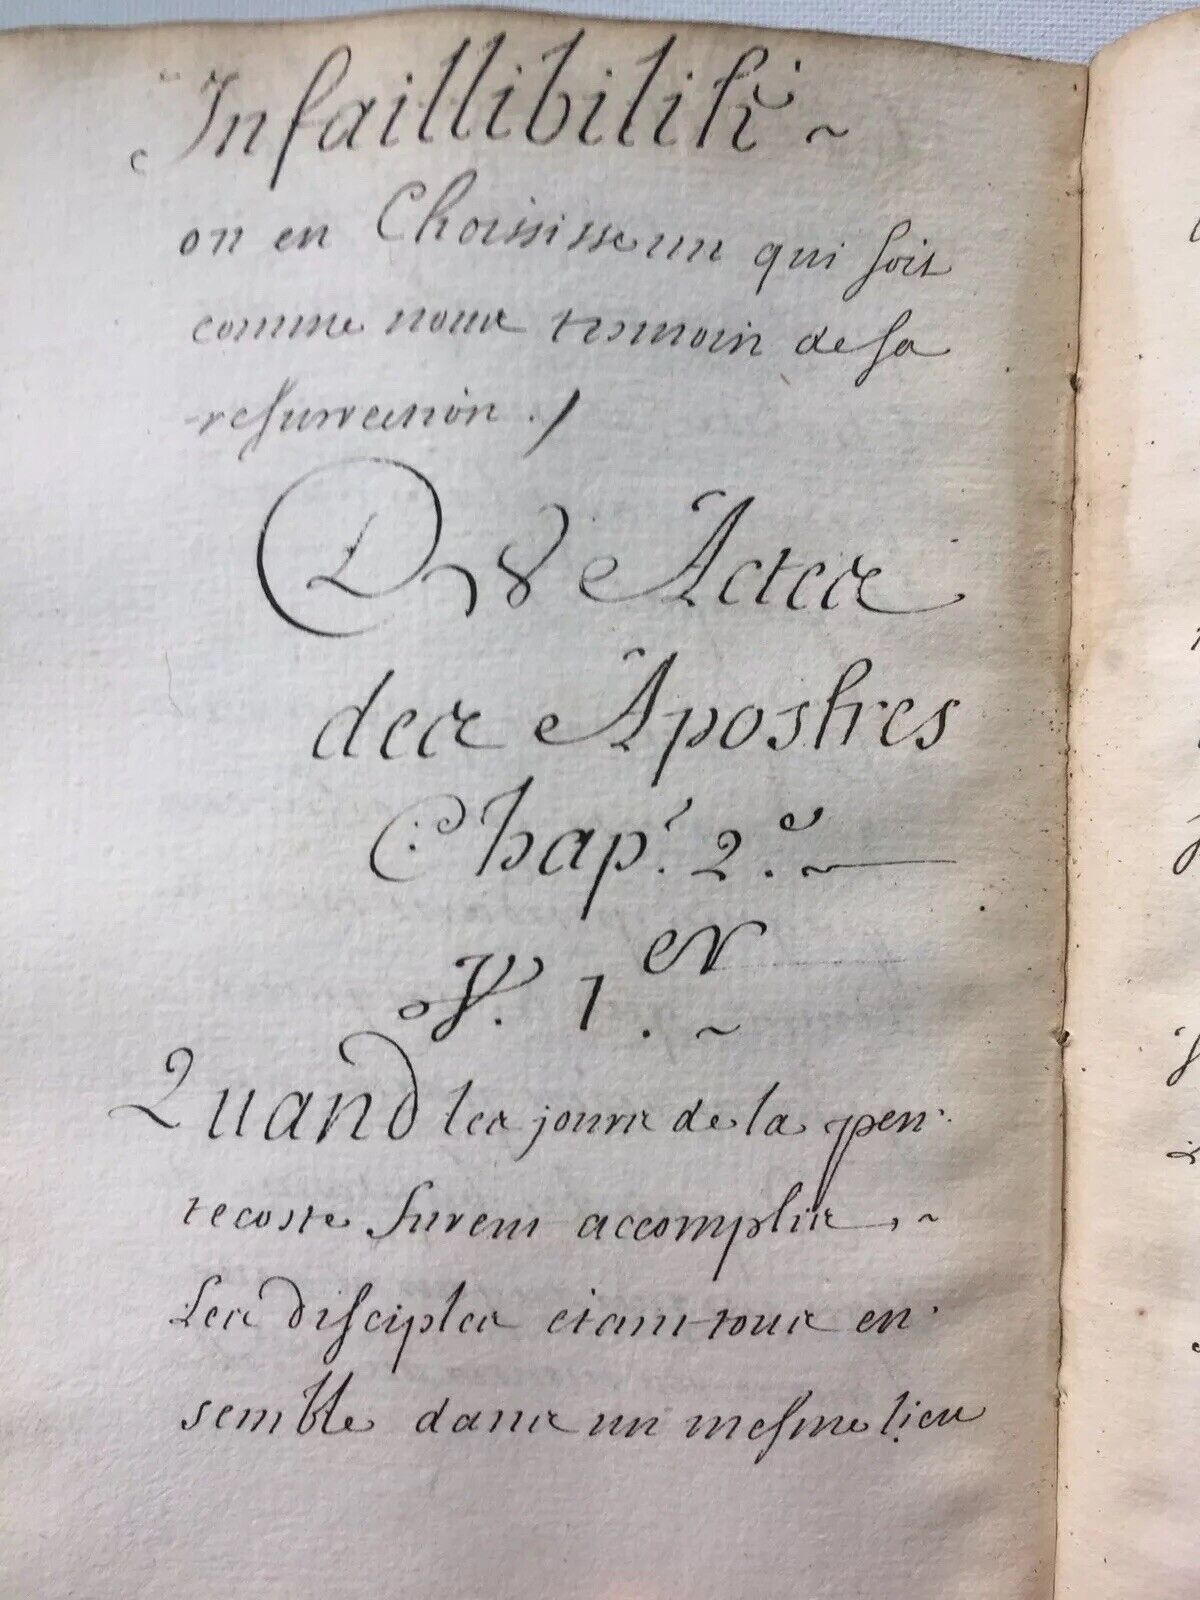 Infaillibilité ~
on en Choisisse un qui soit
comme nous tesmoin de sa
resurrection ./
Des Actes
des Apostres
Chap.r 2.e ~
℣. 1.er ~
Quand les jours de la pen-
tecoste furent accomplis, ~
Les disciples etant tous en-
semble dans un mesme lieu